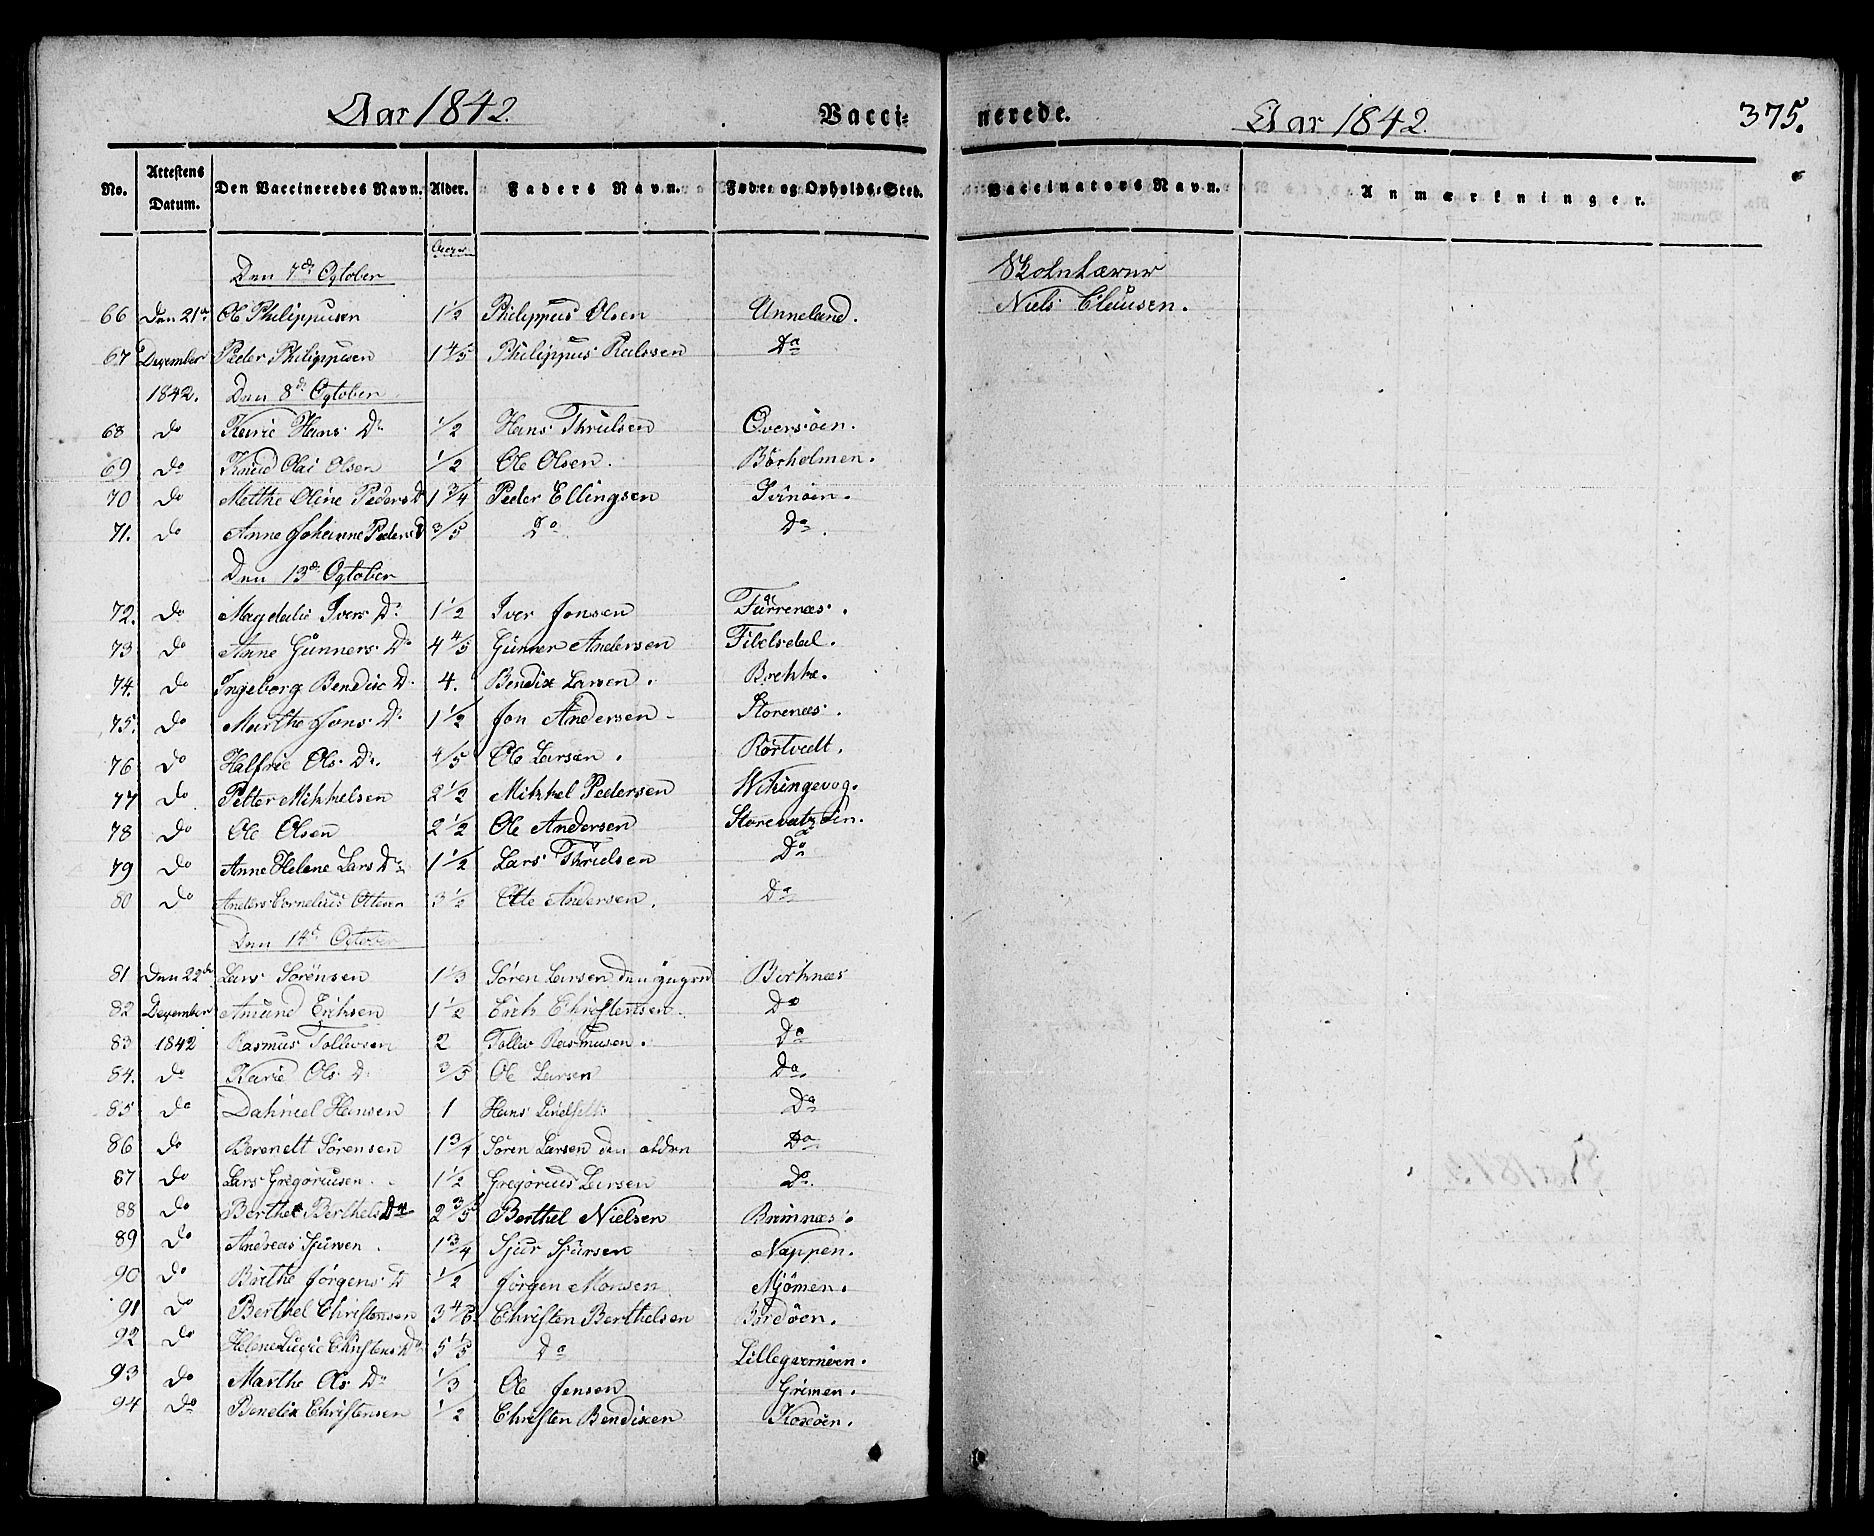 Aar 1842. Vacci= nerede. Aar 1842. 375.
No. Attestens Datum. Den Vaccineredes Navn. Alder. Faders Navn. Føde= og Opholds=Sted. Vaccinators Navn. Anmærkninger.
Den 7de Ogtober Skolulærer
66 Den 21de Ole Philippusen 1 1/2 Philippus Olsen Unneland. Niels Clausen.
67 Deqember Peder Philippusen 1 4/5 Philippus Do
1842. Den 8de Ogtober
68 do Karie Hans Dr 1/2 Hans Thrulsen Oversöen.
69 do Knud Olai Olsen 1/2 Ole Olsen. Börholmen.
70 do Metthe Oline Peders D 1 3/4 Peder Ellingsen
71. do Anne Johanne Peders D 3/5 Do Do.
Den 13de Ogtober
72. do Magdalie Ivers Dr 1 1/2 Iver Jonsen Furrenæs.
73 do Anne Gunners Dr 4 4/5 Gunner Andersen
74. do Ingeborg Bendix D. 4. Bendix Larsen. Brekke.
75. do Marthe Jons Dr 1 1/2 Jon Andersen Storenæs.
76 do Halfrie Ols Dr. 4/5 Ole Larsen. Rörtvedt.
77 do Petter Mikkelsen 2 1/2 Mikkel Pedersen Wikingevog.
78 do Ole Olsen 2 1/2 Ole Andersen
79 do Anne Helene Lars Dr 1 1/2 Lars Thrulsen Do
80 do Anders Cornelius Ottesen 3 1/2 Otte Andersen. Do
Den 14de Ogtober
81 Den 22de Lars Sörensen 1 1/3 Sören Larsen den yngere Birknæs
82 Deqember Amund Eriksen 1 1/2 Erik Christensen. Do
83 1842 Rasmus Tollevsen 2 Tollev Rasmusen. Do
84. do Karie Ols D. 3/5 Ole Larsen Do.
85 do Dahniel Hansen 1 Hans Do
86 do Berendt Sörensen 1 3/4 Sören Larsen den Do
87 do Lars Gregoriusen 1 1/2 Gregorius Larsen Do.
88 do Berthe Berthels Dr 2 3/5 Berthel Nielsen Brimnæs.
89 do Andreas Sjursen. 1 3/4 Sjur Sjursen Nappen.
90 do Birthe Jörgens D 1/2 Jörgen Monsen Mjömen.
91 do Berthel Christensen 3 4/5 Christen Berthelsen
92 do Helene Lucie Christens Dr 5 1/3 Do
93 do Marthe Ols Dr 1/3 Ole Jensen Grimen.
94 do Bendix Christensen 1/2 Christen Bendixen Koxöen.